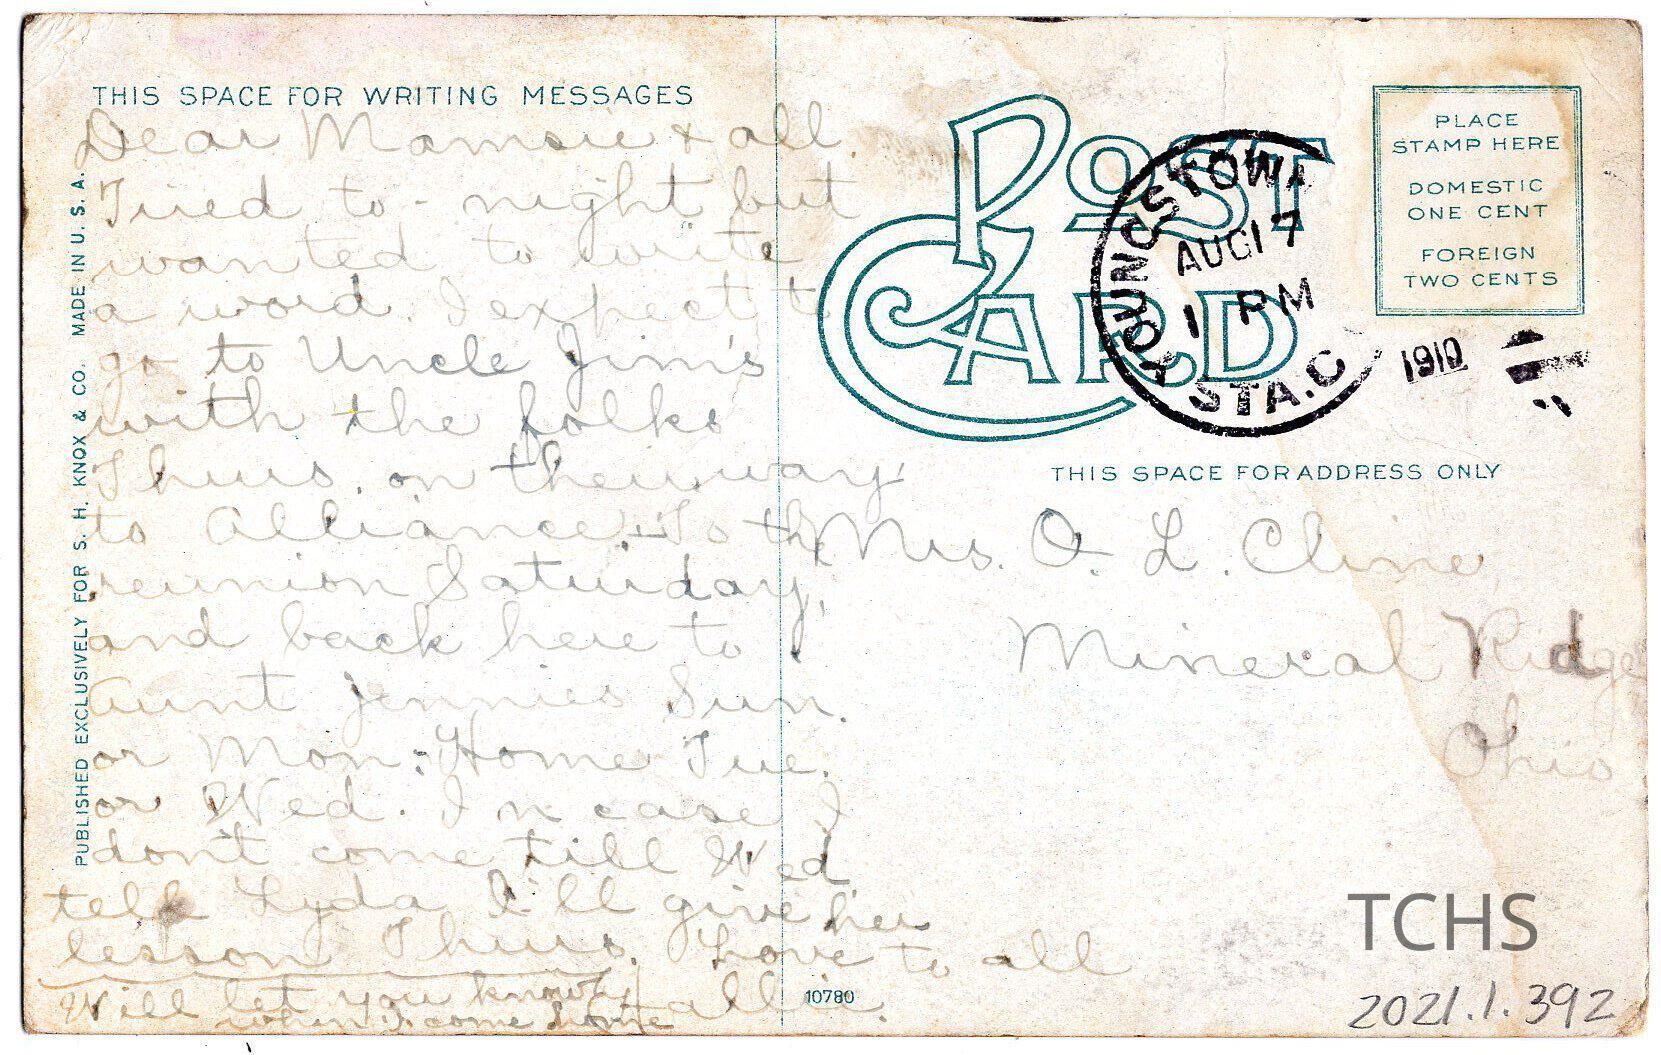 THIS SPACE FOR WRITING MESSAGES
Dear Mamsie & all.
Tired to-night but
wanted to write
a word. I expect to
go to Uncle Jim's
with the folks
Thurs. on their way
to Alliance. To the
reunion Saturday,
and back here to
Aunt Jennies Sun.
or Mon. Home Tue.
or Wed. In case I
don't come till Wed
tell Lyda I'll give her
lesson Thurs. Love to all
Will let you know
when I come home
PUBLISHED EXCLUSIVELY FOR S. H. KNOX & CO. MADE IN U. S. A.
10780
POST CARD
YOUNGSTOWN
AUG 17
1 PM
1910
STA. C
PLACE
STAMP HERE
DOMESTIC
ONE CENT
FOREIGN
TWO CENTS
THIS SPACE FOR ADDRESS ONLY
Mrs. O. L. Cline
Mineral Ridge
Ohio
TCHS
2021.1.392